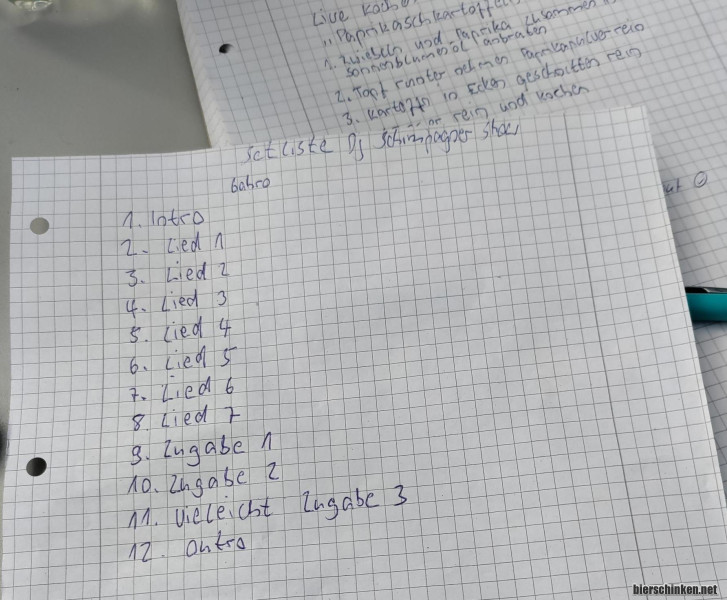 Live Koche
"Paprikaschkartoffel
1. Zwiebeln und Paprika zusammen in
Sonnenblumenöl anbraten
2. Topf runter nehmen Paprikapulver rein
3. Kartoffn in Ecken geschnitten rein
rein und kochen
ut
Setliste Dj Schimpagner Show
1. Intro
2. Lied 1
3. Lied 2
4. Lied 3
5. Lied 4
6. Lied 5
7. Lied 6
8. Lied 7
9. Zugabe 1
10. Zugabe 2
11. Vieleicht Zugabe 3
12. Outro
bierschinken.net